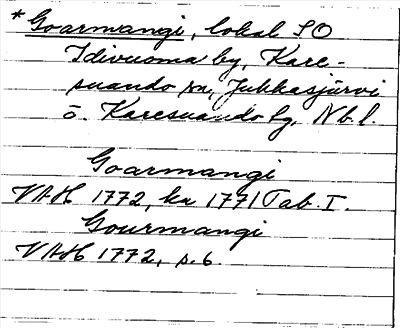 * Goarmangi, lokal SO
Idivuoma by, Kare-
suando sn, Jukkasjärvi
o. Karesuando tg, Nb.l.
Goarmangi
VAH 1772, ka 1771 Tab. I.
Gourmangi
VAH 1772, s. 6.